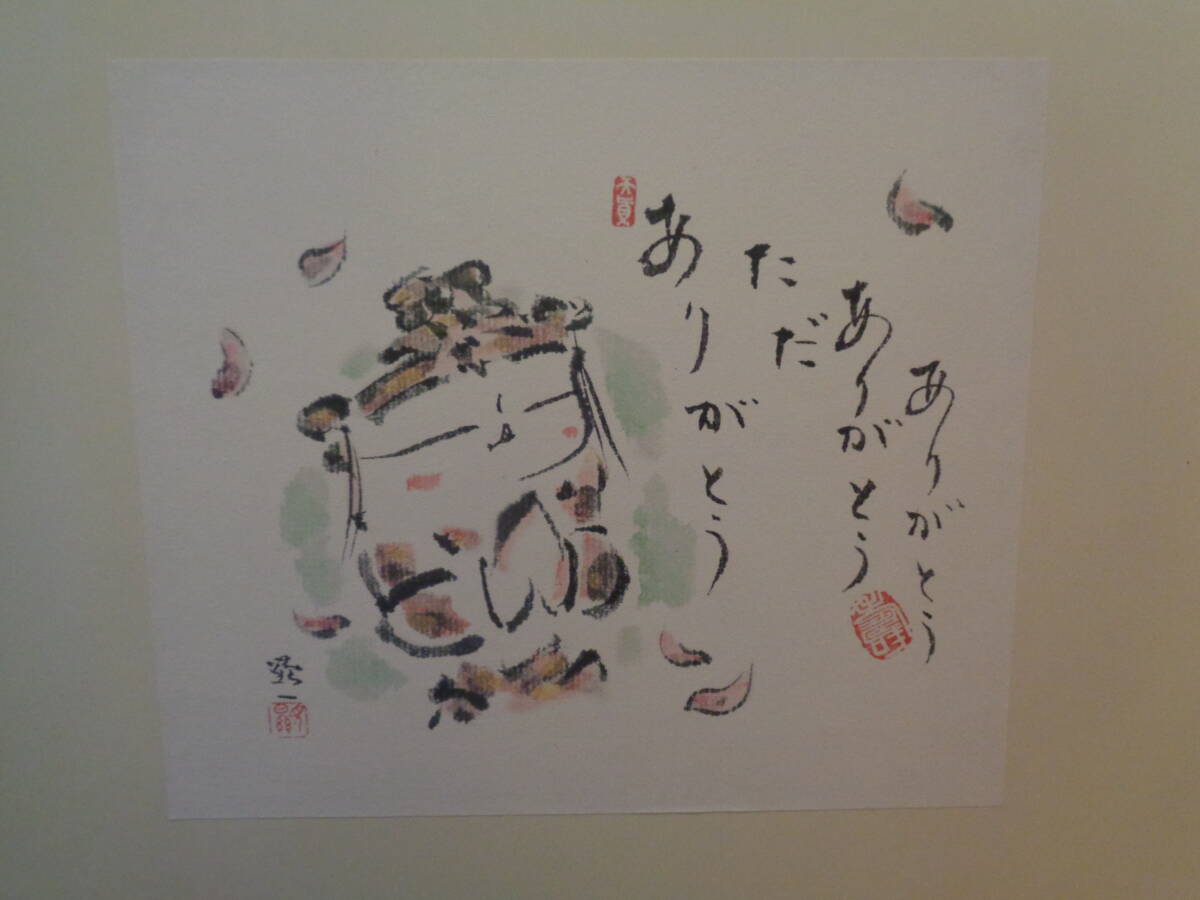 ありがとう
ありがとう
ただ
ありがとう